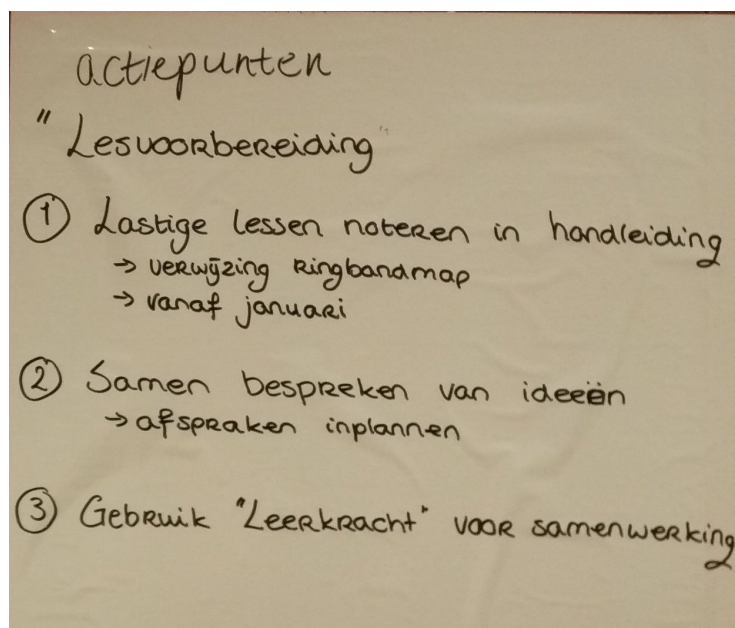 actiepunten
"Lesvoorbereiding"
① Lastige lessen noteren in handleiding
→ verwijzing Ringbandmap
→ vanaf januari
② Samen bespreken van ideeën
→ afspraken inplannen
③ Gebruik "Leerkracht" voor samenwerking